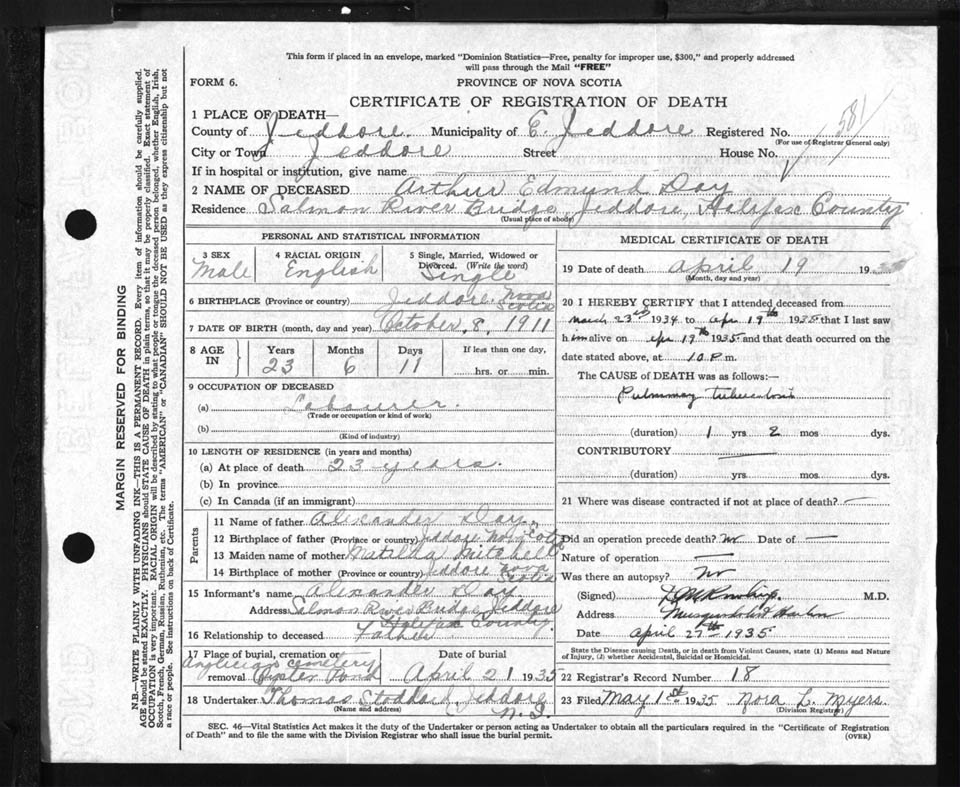 This form if placed in an envelope, marked "Dominion Statistics—Free, penalty for improper use, $300," and properly addressed
will pass through the Mail "FREE"
FORM 6.
PROVINCE OF NOVA SCOTIA
CERTIFICATE OF REGISTRATION OF DEATH
1 PLACE OF DEATH—
County of Jeddore. Municipality of E. Jeddore Registered No. 581
(For use of Registrar General only)
City or Town Jeddore Street House No.
If in hospital or institution, give name
2 NAME OF DECEASED Arthur Edmund Day
Residence Salmon River Bridge, Jeddore, Halifax County
(Usual place of abode)
PERSONAL AND STATISTICAL INFORMATION
3 SEX Male
4 RACIAL ORIGIN English
5 Single, Married, Widowed or
Divorced. (Write the word)
Single
6 BIRTHPLACE (Province or country) Jeddore. Nova Scotia
7 DATE OF BIRTH (month, day and year) October. 8, 1911
8 AGE IN
Years 23
Months 6
Days 11
If less than one day,
hrs. or min.
9 OCCUPATION OF DECEASED
(a) Labourer.
(Trade or occupation or kind of work)
(b)
(Kind of industry)
10 LENGTH OF RESIDENCE (in years and months)
(a) At place of death 23 years.
(b) In province
(c) In Canada (if an immigrant)
Parents
11 Name of father Alexander Day
12 Birthplace of father (Province or country) Jeddore Nova Scotia
13 Maiden name of mother Matilda Mitchell
14 Birthplace of mother (Province or country) Jeddore Nova Scotia
15 Informant's name Alexander Day
Address Salmon River Bridge, Jeddore
Halifax County.
16 Relationship to deceased Father
17 Place of burial, cremation or
removal Anglican cemetery
Oyster Pond
Date of burial
April 21 1935
18 Undertaker Thomas Stoddard, Jeddore
(Name and address) N.S.
MEDICAL CERTIFICATE OF DEATH
19 Date of death April 19 1935
(Month, day and year)
20 I HEREBY CERTIFY that I attended deceased from
March 23rd 1934 to Apr 19th 1935 that I last saw
him alive on Apr 19th 1935 and that death occurred on the
date stated above, at 10 P.m.
The CAUSE OF DEATH was as follows:—
Pulmonary tuberculosis
(duration) 1 yrs 2 mos dys.
CONTRIBUTORY —
(duration) yrs mos dys.
21 Where was disease contracted if not at place of death? —
Did an operation precede death? No Date of —
Nature of operation —
Was there an autopsy? No
(Signed) M.D.
Address Musquodoboit Harbor
Date April 27th 1935
State the Disease causing Death, or in death from Violent Causes, state (1) Means and Nature
of Injury, (2) whether Accidental, Suicidal or Homicidal.
22 Registrar's Record Number 18
23 Filed May 1st 1935 Nora L. Myers.
(Division Registrar)
SEC. 46—Vital Statistics Act makes it the duty of the Undertaker or person acting as Undertaker to obtain all the particulars required in the "Certificate of Registration
of Death" and to file the same with the Division Registrar who shall issue the burial permit.
(OVER)
MARGIN RESERVED FOR BINDING
N.B.—WRITE PLAINLY WITH UNFADING INK—THIS IS A PERMANENT RECORD. Every item of information should be carefully supplied.
AGE should be stated EXACTLY. PHYSICIANS should STATE CAUSE OF DEATH in plain terms, so that it may be properly classified. Exact statement of
OCCUPATION is very important. RACIAL ORIGIN will be described by stating to what people or tongue the deceased person belonged, whether English, Irish,
Scotch, French, German, Russian, Ruthenian, etc. The terms "AMERICAN" or "CANADIAN" SHOULD NOT BE USED as they express citizenship but not
a race or people. See instructions on back of Certificate.